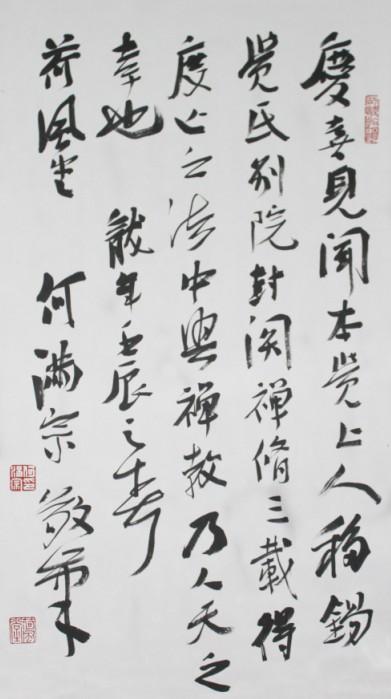 慶喜見聞本覺上人移錫
覺民別院封関禪脩三載得
度上之法中興禪教乃人天之
幸也 龍年壬辰之春
荷風堂 何滿宗 敬筆